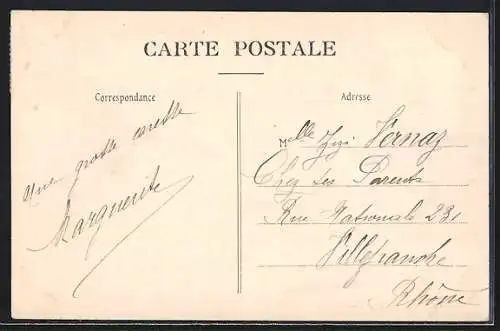 CARTE POSTALE
Correspondance
Adresse
Une grosse caresse
Marguerite
Melle Zizi Vernay
Chez ses Parents
Rue Nationale 231
Villefranche
Rhône